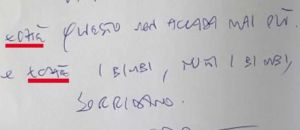 QUESTO NON ACCADA MAI PIÙ.
E I BIMBI, TUTTI I BIMBI,
SORRIDANO.